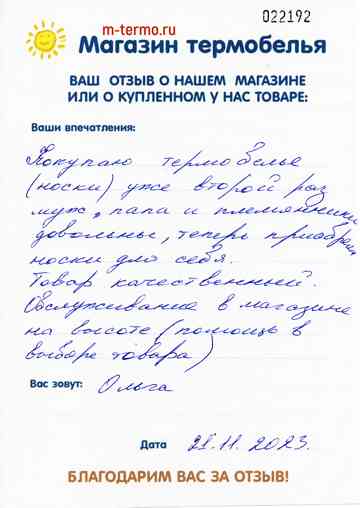 022192
m-termo.ru
Магазин термобелья
ВАШ ОТЗЫВ О НАШЕМ МАГАЗИНЕ
ИЛИ О КУПЛЕННОМ У НАС ТОВАРЕ:
Ваши впечатления:
Покупаю термобелье
(носки) уже второй раз
муж, папа и племянники
довольны, теперь приобрела
носки для себя.
Товар качественный.
Обслуживание в магазине
на высоте (помощь в
выборе товара)
Вас зовут: Ольга
Дата 21.11.2023.
БЛАГОДАРИМ ВАС ЗА ОТЗЫВ!